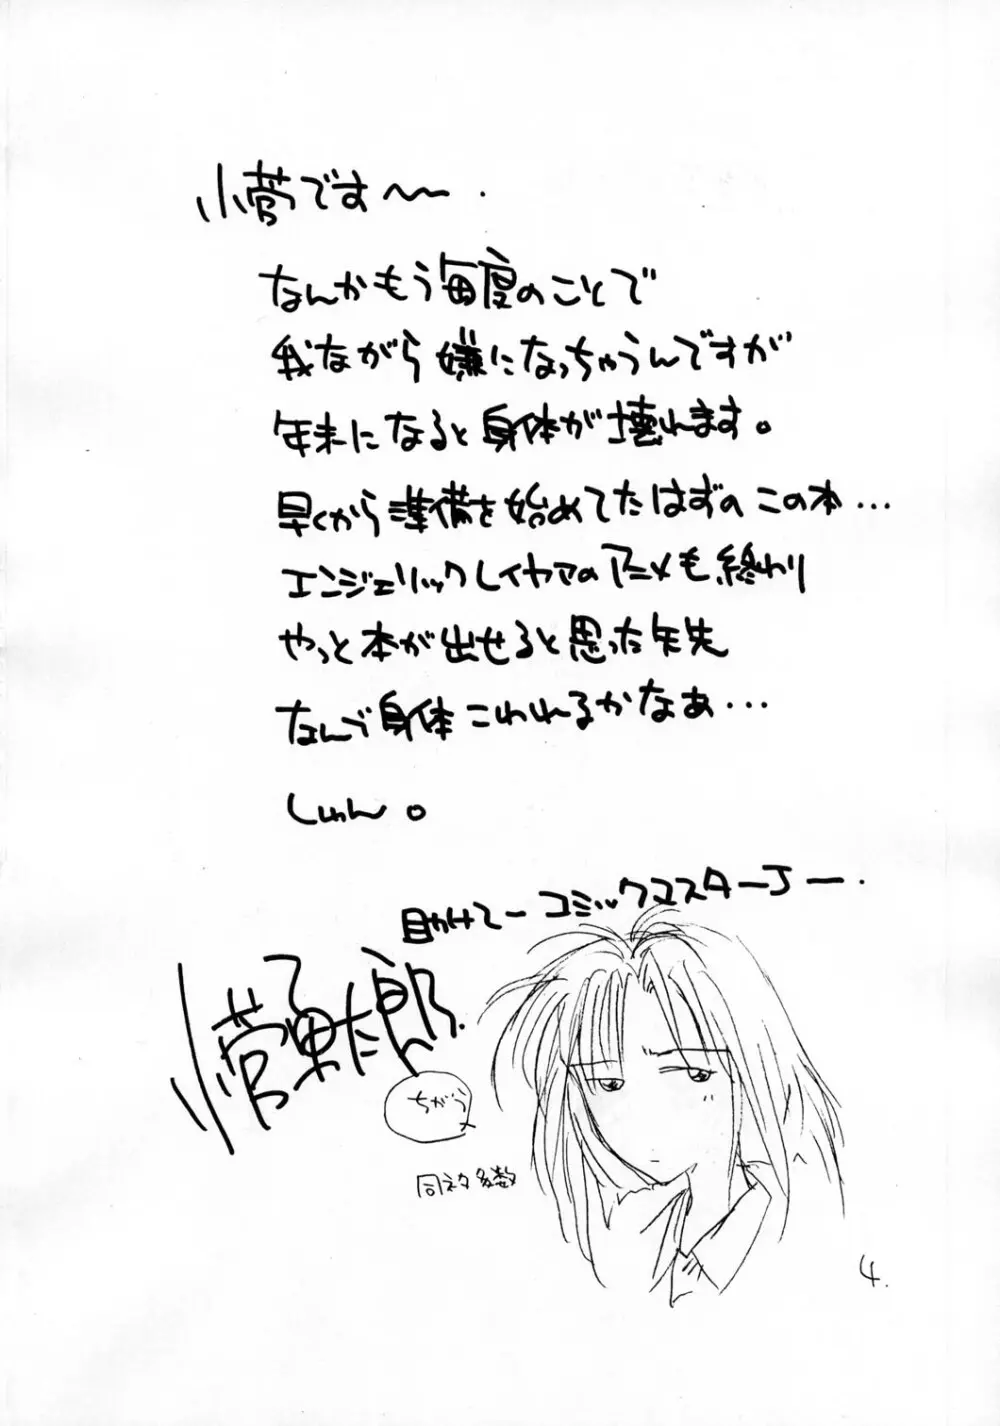 小菅です〜.
なんかもう毎度のことで
我ながら嫌になっちゃうんですが
年末になると身体が壊れます。
早くから準備を始めてたはずのこの本…
エンジェリックレイヤアのアニメも終わり
やっと本が出せると思った矢先
なんで身体こわれるかなあ…
しゅん。
助けてーコミックマスターJー.
小菅勇太郎.
ちがう
同ネタ多数
4.